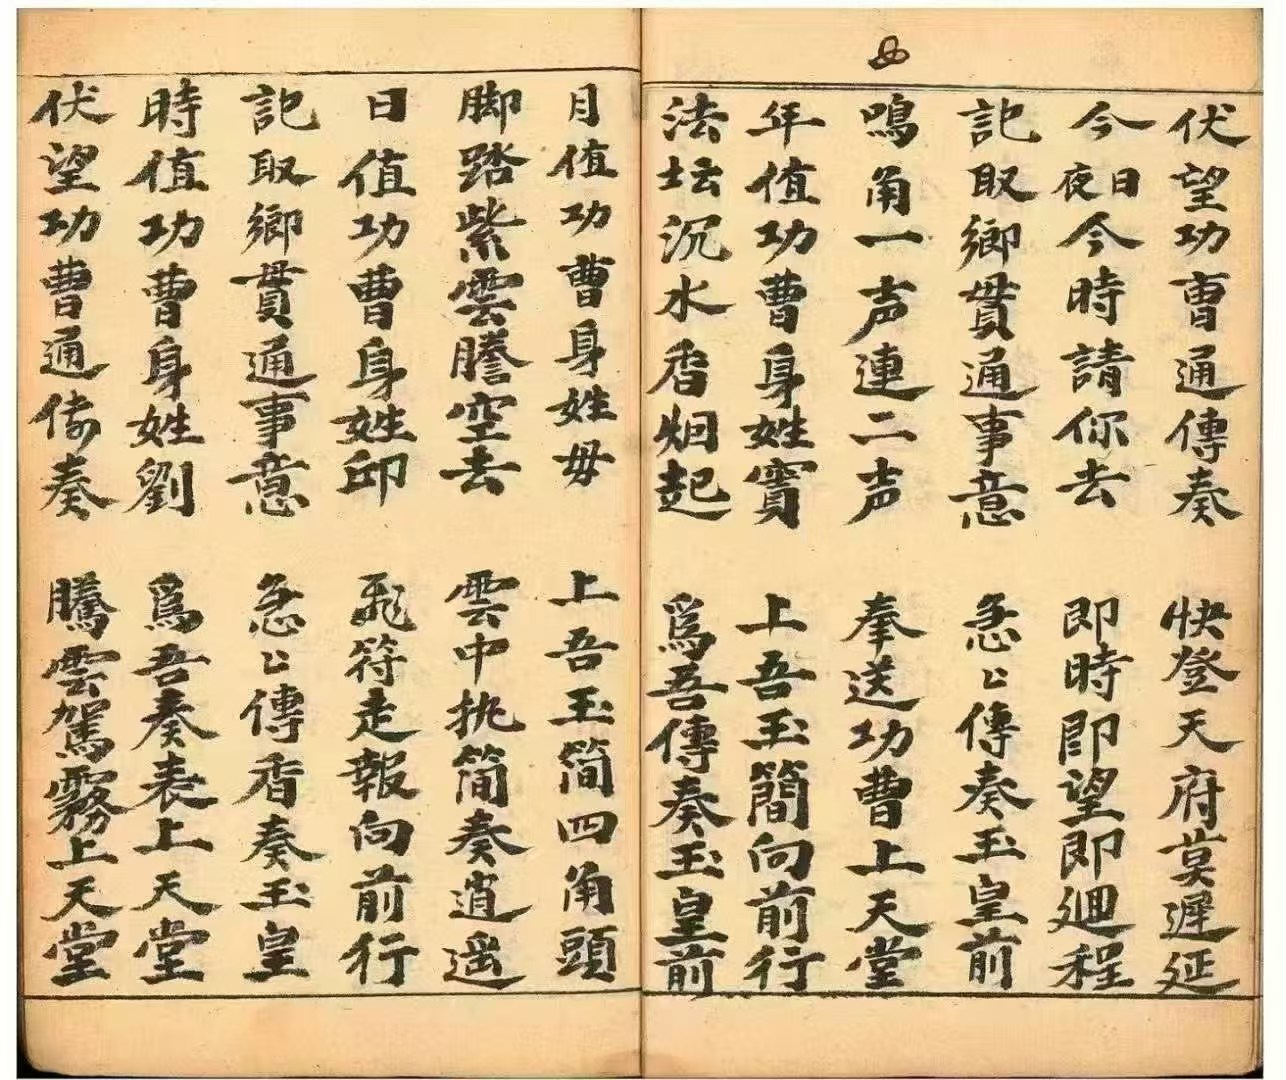 伏望功曹通傳奏 快登天府莫遲延
今夜日今時請你去 即時即望即廻程
記取鄉貫通事意 急〻傳奏玉皇前
鳴角一声連二声 奉送功曹上天堂
年值功曹身姓竇 上吾玉簡向前行
法坛沉水香烟起 爲吾傳奏玉皇前
月值功曹身姓毋 上吾玉简四角頭
脚踏紫雲騰空去 雲中执简奏逍遥
日值功曹身姓邱 飛符走報向前行
記取鄉貫通事意 急〻傳香奏玉皇
時值功曹身姓劉 爲吾奏表上天堂
伏望功曹通傳奏 騰雲駕霧上天堂